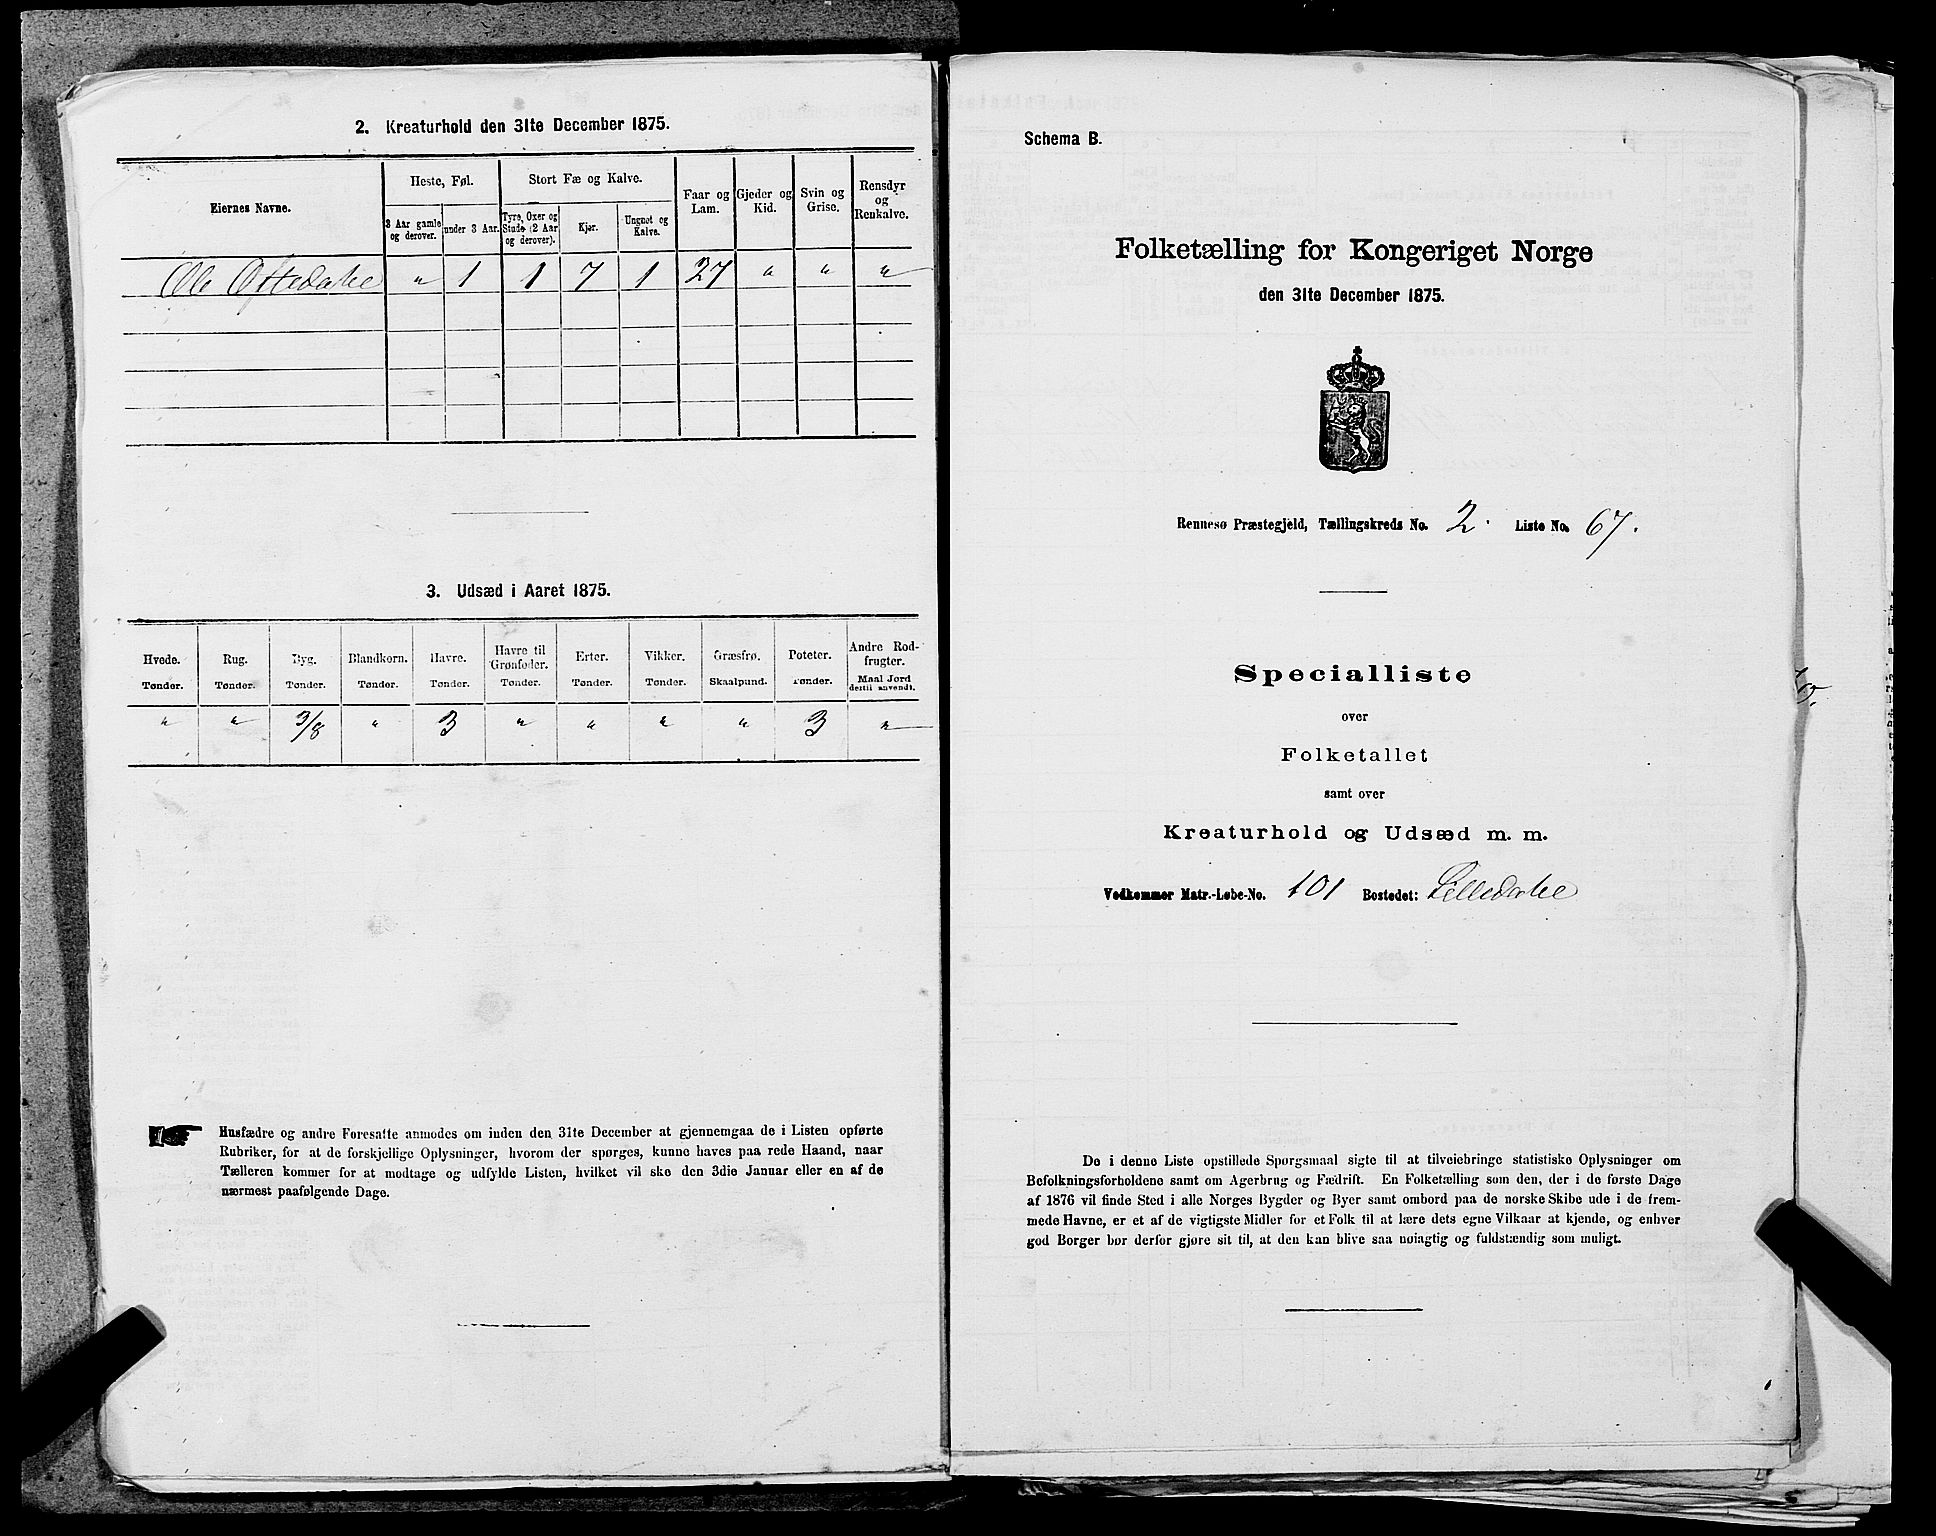 2. Kreaturhold den 31te December 1875.
Eiernes Navne.
Heste, Føl.
Stort Fæ og Kalve.
Faar og Lam.
Gjeder og Kid.
Svin og Grise.
Rensdyr og Renkalve.
3 Aar gamle og derover.
under 3 Aar.
Tyre, Oxer og Stude (2 Aar og derover).
Kjør.
Ungnøt og Kalve.
Ole Oftedahl " 1 1 7 1 27 " " "
3. Udsæd i Aaret 1875.
Hvede. Rug. Byg. Blandkorn. Havre. Havre til Grønfoder. Erter. Vikker. Græsfrø. Poteter. Andre Rodfrugter.
Tønder. Tønder. Tønder. Tønder. Tønder. Tønder. Tønder. Tønder. Skaalpund. Tønder. Maal Jord dertil anvendt.
" " 3/8 " 3 " " " " 3 "
Husfædre og andre Foresatte anmodes om inden den 31te December at gjennemgaa de i Listen opførte
Rubriker, for at de forskjellige Oplysninger, hvorom der spørges, kunne haves paa rede Haand, naar
Tælleren kommer for at modtage og udfylde Listen, hvilket vil ske den 3die Januar eller en af de
nærmest paafølgende Dage.
Schema B.
Folketælling for Kongeriget Norge
den 31te December 1875.
Rennesø Præstegjeld, Tællingskreds No. 2. Liste No. 67.
Specialliste
over
Folketallet
samt over
Kreaturhold og Udsæd m. m.
Vedkommer Matr.-Løbe-No. 101 Bostedet: Lilledahl
De i denne Liste opstillede Spørgsmaal sigte til at tilveiebringe statistiske Oplysninger om
Befolkningsforholdene samt om Agerbrug og Fædrift. En Folketælling som den, der i de første Dage
af 1876 vil finde Sted i alle Norges Bygder og Byer samt ombord paa de norske Skibe ude i de frem-
mede Havne, er et af de vigtigste Midler for et Folk til at lære dets egne Vilkaar at kjende, og enhver
god Borger bør derfor gjøre sit til, at den kan blive saa nøiagtig og fuldstændig som muligt.